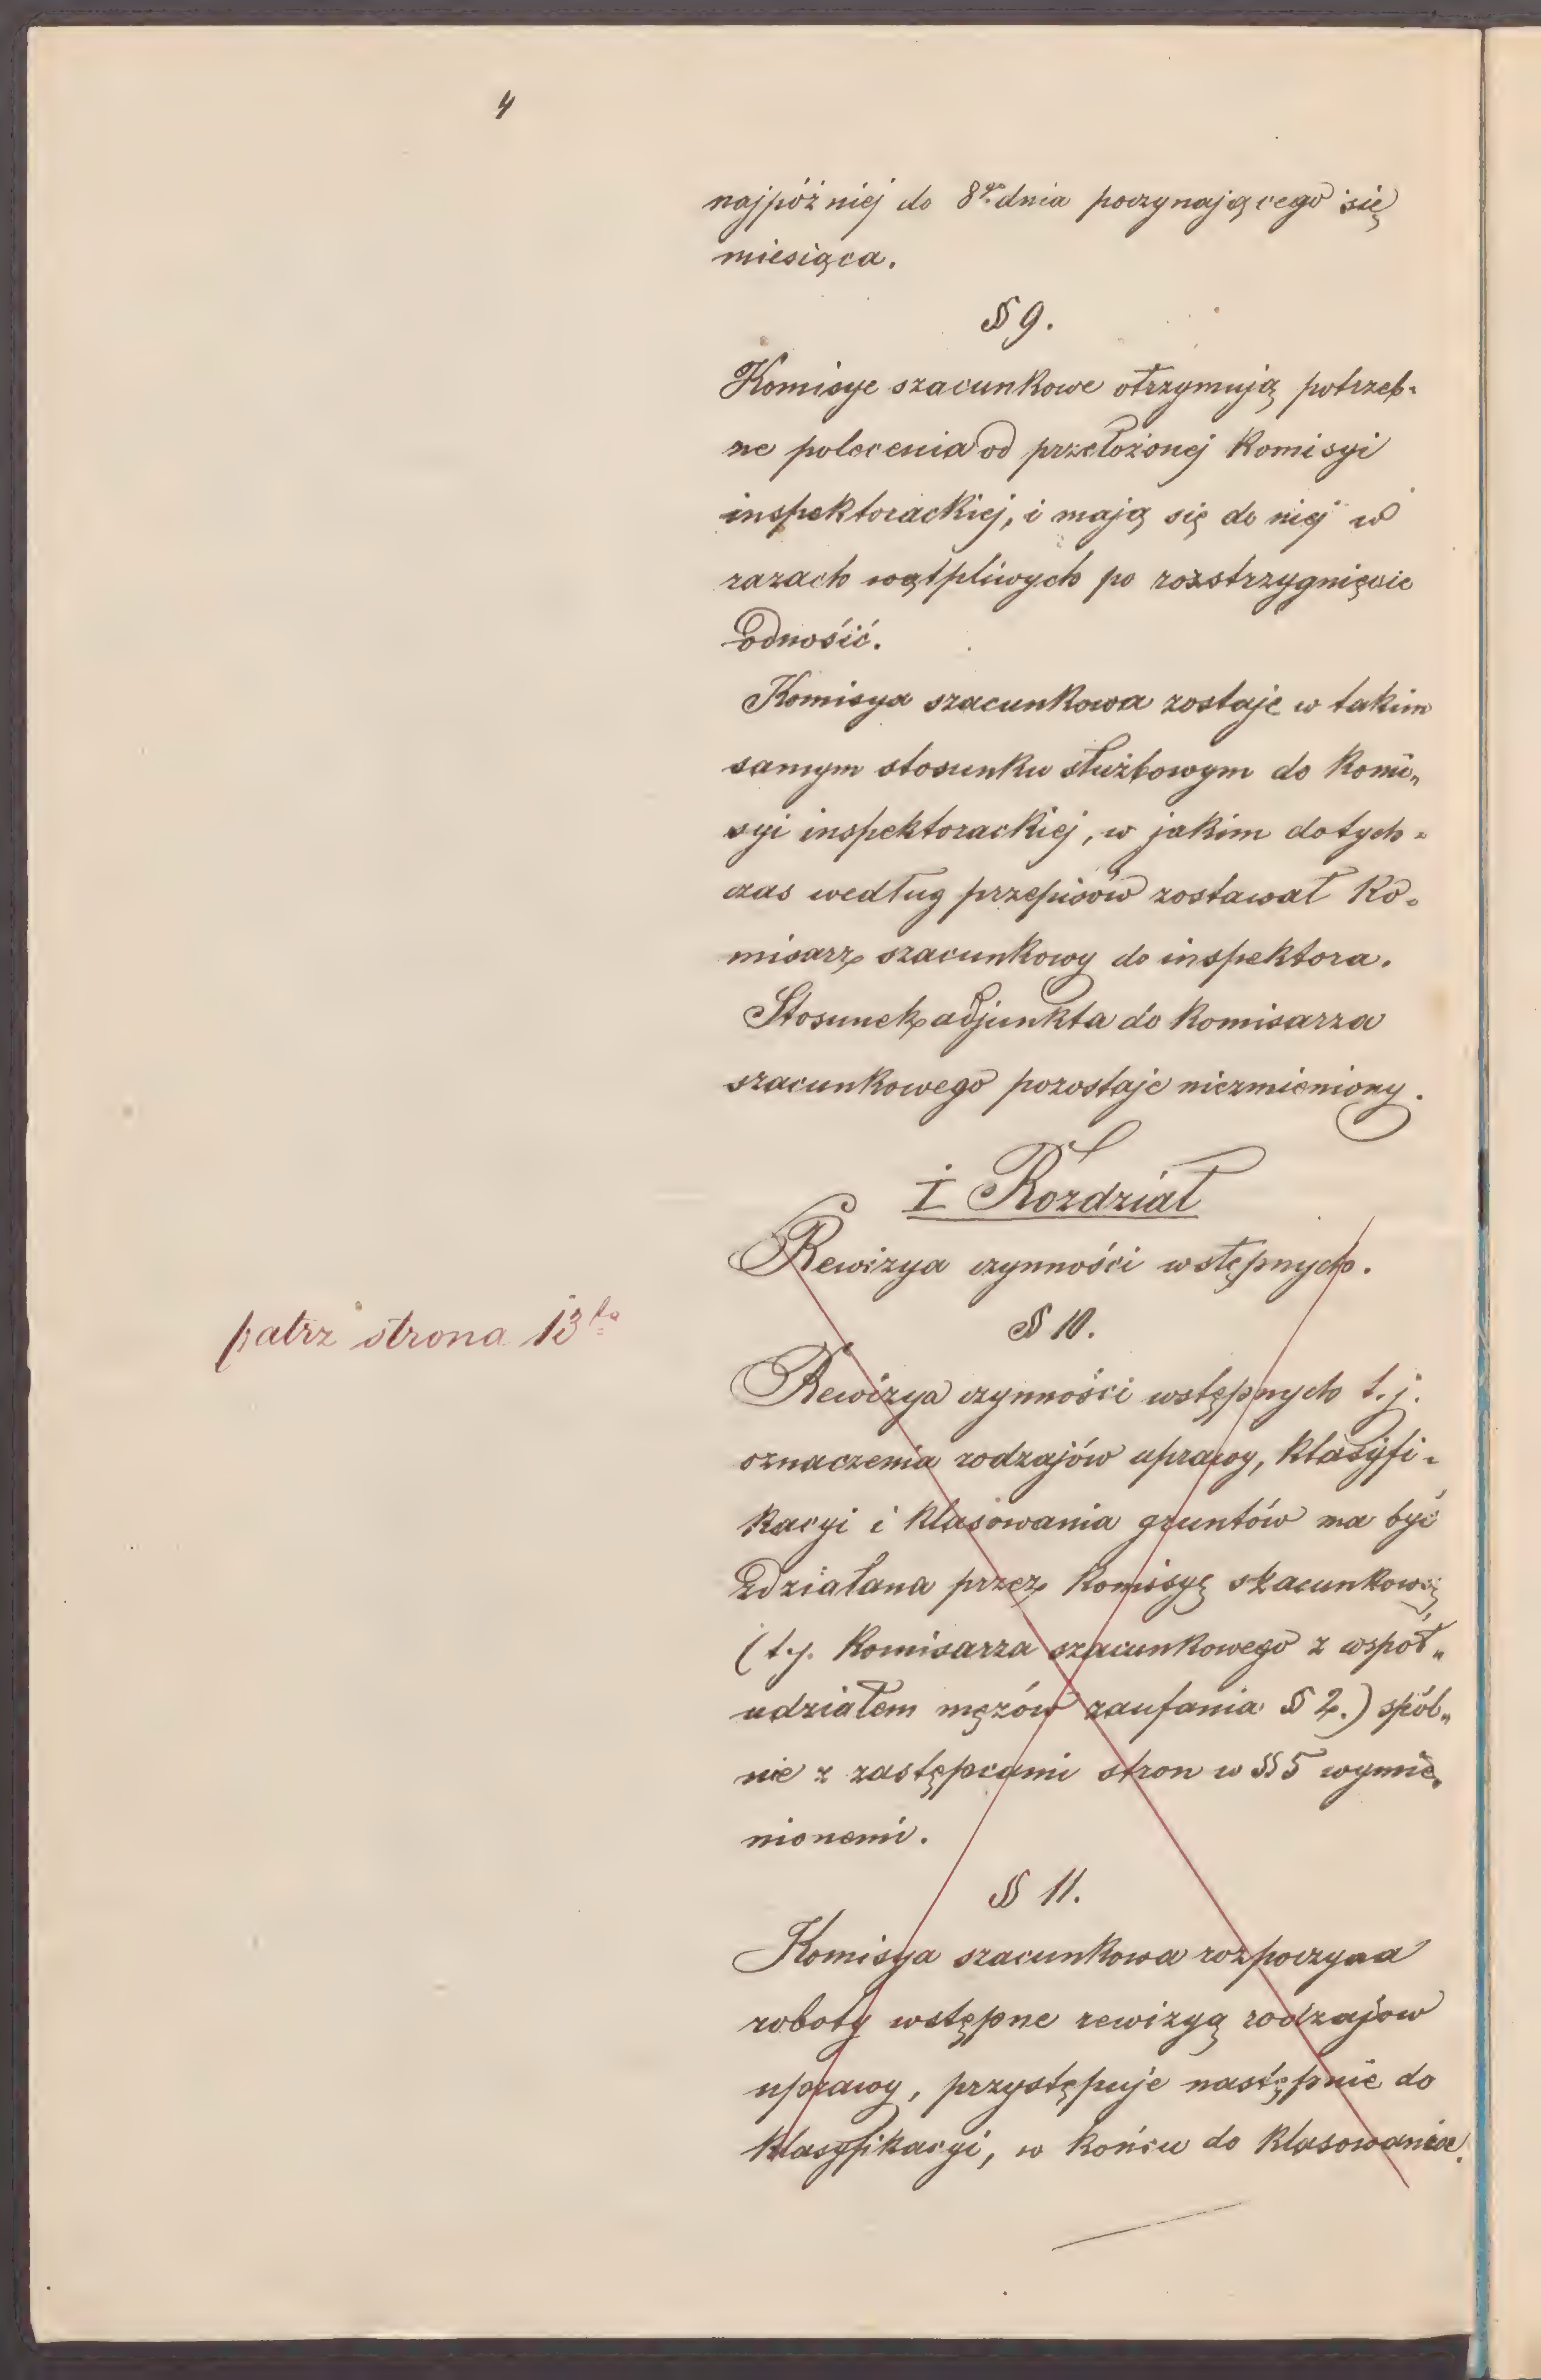 4
najpóźniej do 8go dnia poczynającego się
miesiąca.
§ 9.
Komisye szacunkowe otrzymują potrzeb-
ne polecenia od przełożonej Komisyi
inspektorackiej, i mają się do niej w
razach wątpliwych po rozstrzygnięcie
odnośić.
Komisya szacunkowa zostaje w takim
samym stosunku służbowym do Komi„
syi inspektorackiej, w jakim dotych-
czas według przepisów zostawał Ko-
misarz szacunkowy do inspektora.
Stosunek adjunkta do Komisarza
szacunkowego pozostaje niezmieniony.
I Rozdział
Rewizya czynności wstępnych.
§ 10.
patrz strona 13ta
Rewizya czynności wstępnych t.j.
oznaczenia rodzajów uprawy, klasyfi-
kacyi i klasowania gruntów ma być
zdziałana przez Komisyę szacunkową
(t.j. Komisarza szacunkowego z współ„
udziałem mężów zaufania § 2.) spól„
nie z zastępcami stron w § 5 wymie„
nionemi.
§ 11.
Komisya szacunkowa rozpoczyna
roboty wstępne rewizyą rodzajow
uprawy, przystępuje następnie do
klasyfikacyi, w końcu do klasowania.